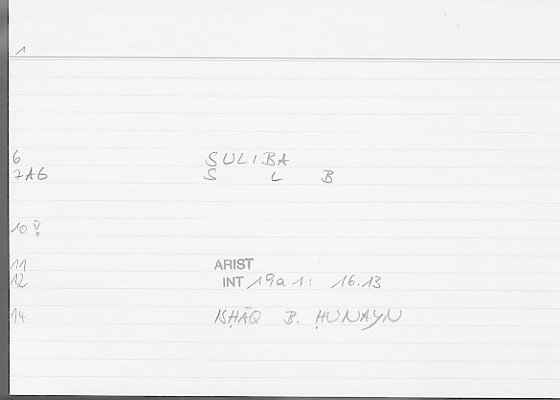 1
6 SULIBA
7AG S L B
10 v̄.
11 ARIST
12 INT 19a1: 16.13
14 ISḤĀQ B. ḤUNAYN